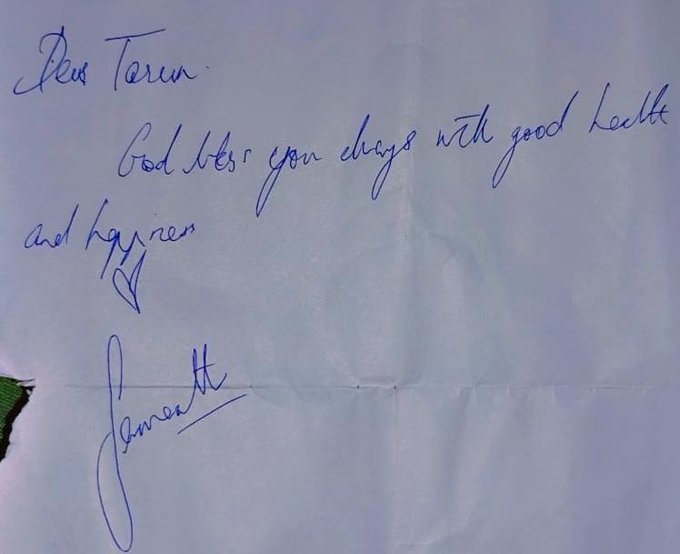 Dear Tarun.
God bless you always with good health
and happiness